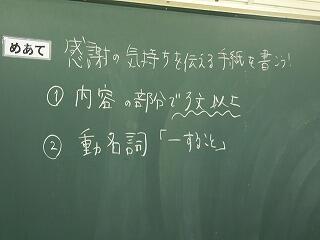 めあて 感謝の気持ちを伝える手紙を書こう!
① 内容の部分で3文以上
② 動名詞「―すること」